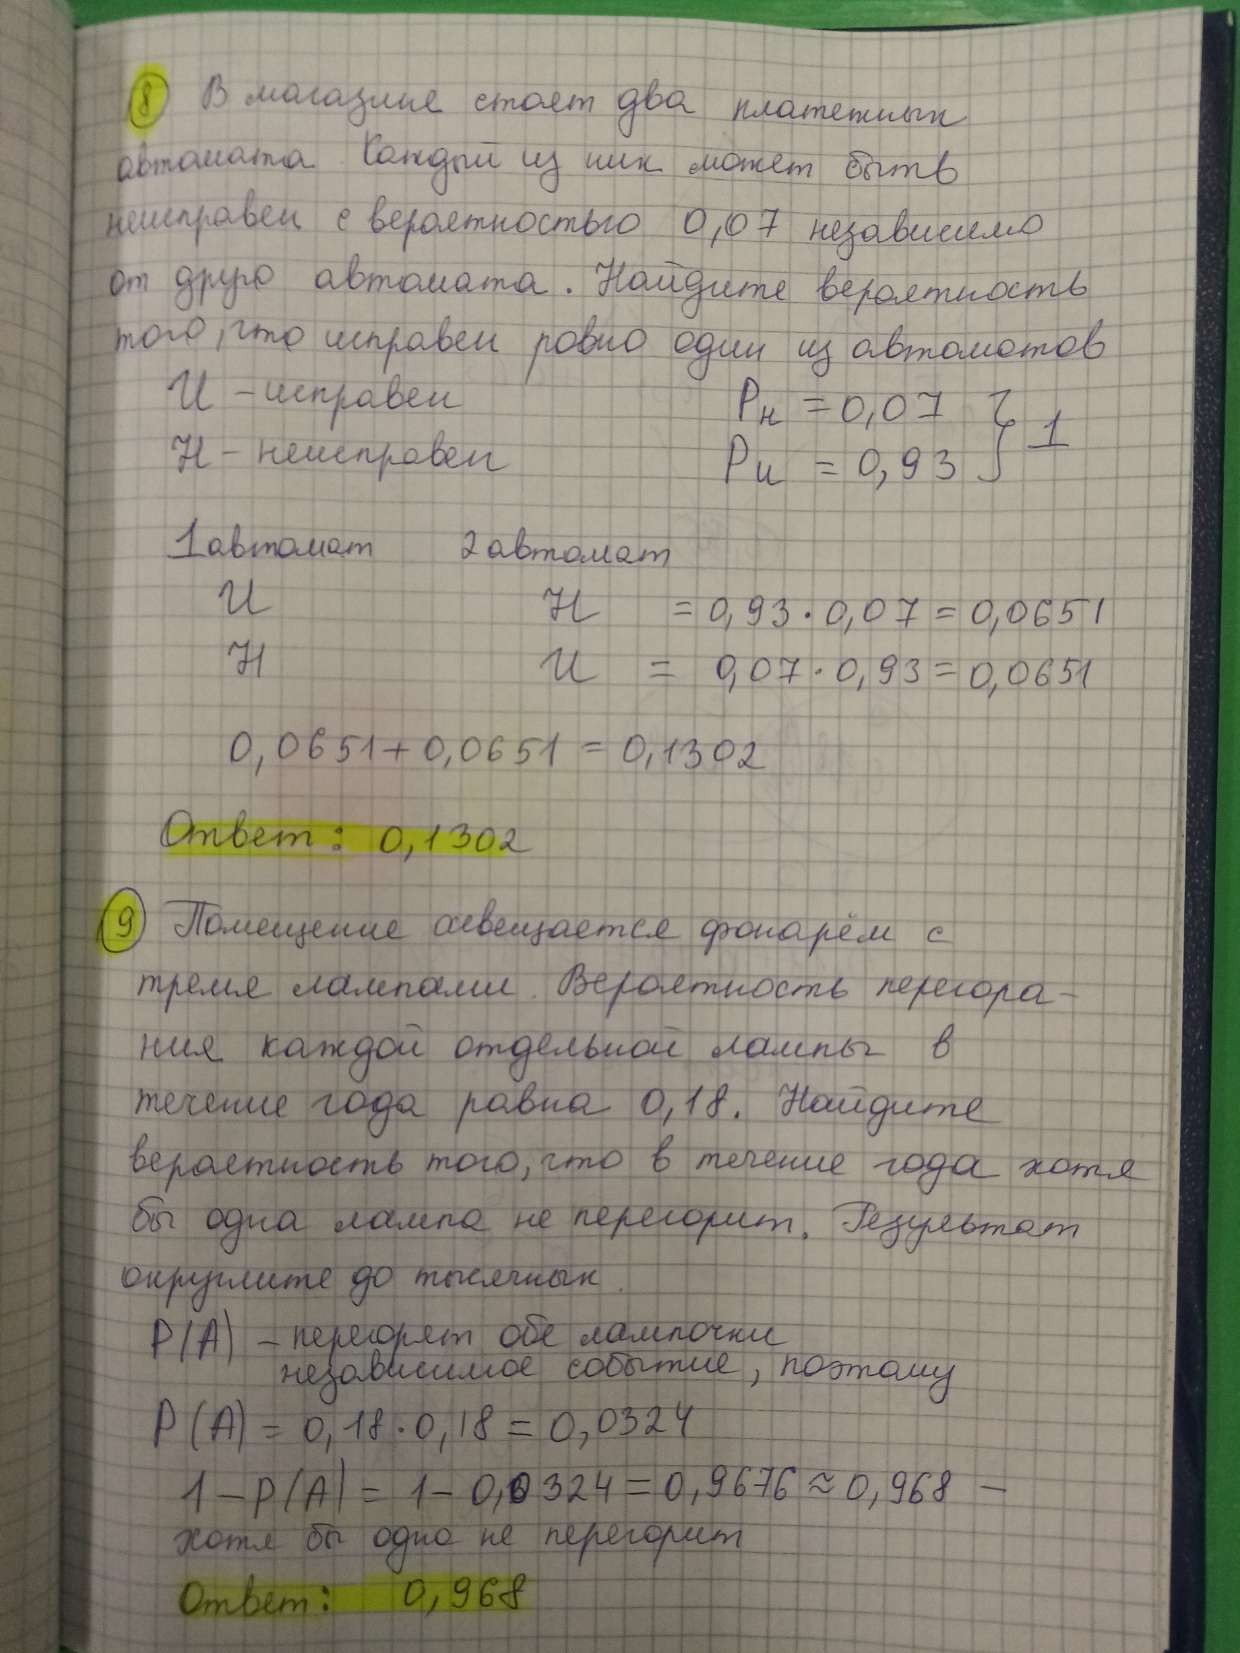 8 В магазине стоят два платежных
автомата. Каждый из них может быть
неисправен с вероятностью 0,07 независимо
от друго автомата. Найдите вероятность
того, что исправен ровно один из автоматов
И - исправен Pн = 0,07 } 1
Н - неисправен Pи = 0,93
1 автомат 2 автомат
И Н = 0,93 · 0,07 = 0,0651
Н И = 0,07 · 0,93 = 0,0651
0,0651 + 0,0651 = 0,1302
Ответ: 0,1302
9 Помещение освещается фонарём с
тремя лампами. Вероятность перегора-
ния каждой отдельной лампы в
течение года равна 0,18. Найдите
вероятность того, что в течение года хотя
бы одна лампа не перегорит. Результат
округлите до тысячных.
P(A) - перегорят обе лампочки
независимое событие, поэтому
P(A) = 0,18 · 0,18 = 0,0324
1 - P(A) = 1 - 0,0324 = 0,9676 ≈ 0,968 -
хотя бы одна не перегорит
Ответ: 0,968